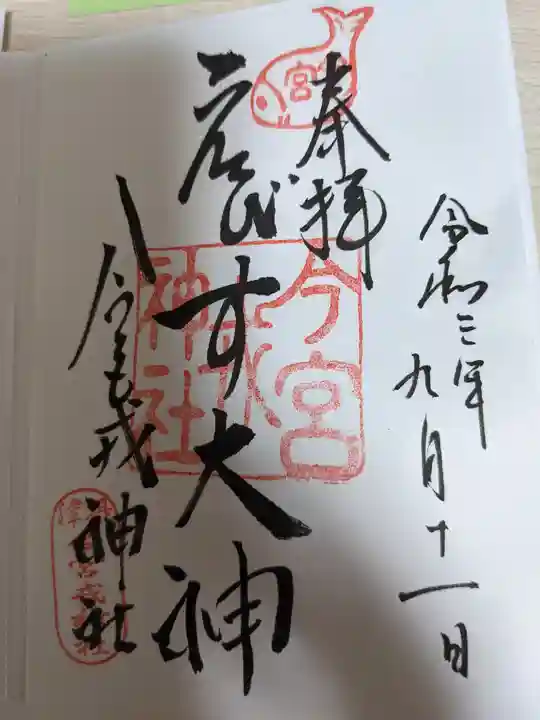 令和三年九月十一日
奉拝
ゑびす大神
今宮戎神社
今宮
神社
宮